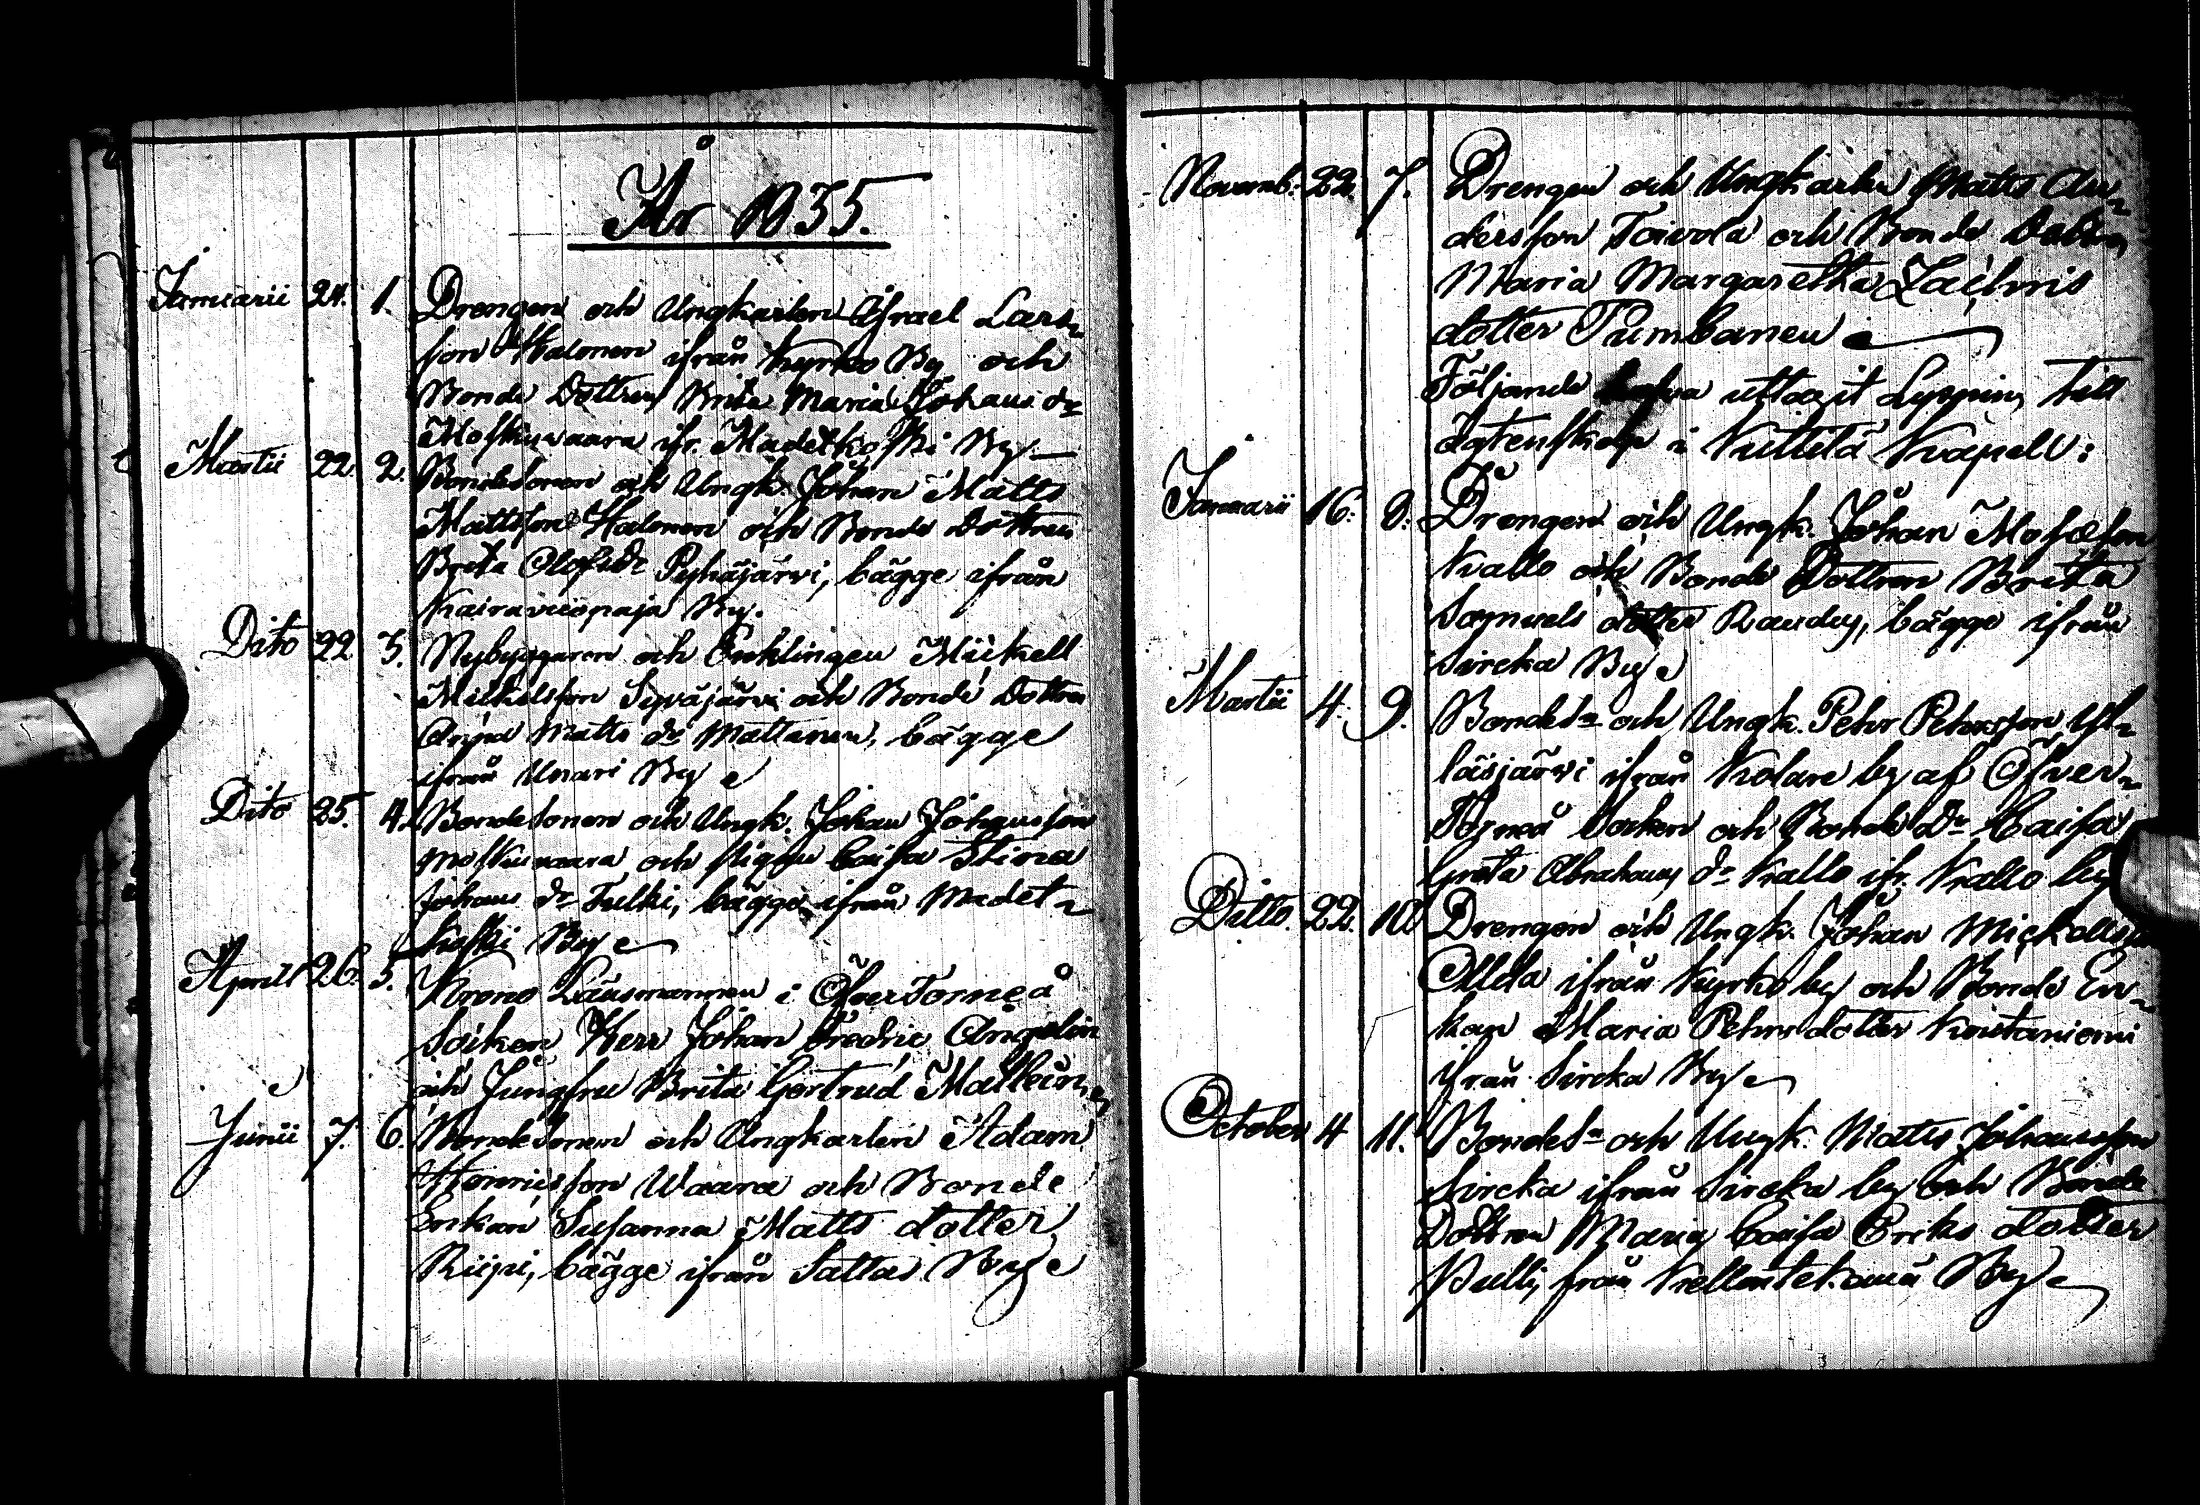 År 1835.
Januarii 24. 1. Drengen och Ungkarlen Israel Lars-
son Halonen ifrån Kyrko By och
Bonde Dottren Brita Maria Johans dr
Moskuwaara ifr. Madetkoski By
Martii 22. 2. Bondesonen och Ungk. Johan Matts
Mattsson Halonen och Bonde Dottren
Brita Olofs dr Pyhäjärvi, bägge ifrån
Kairavuopaja By.
Dito 22. 3. Nybyggaren och Enklingen Mickell
Mickelsson Syväjärvi och Bonde Dottren
Anna Matts dr Mattanen, bägge
ifrån Unari By
Dito 25. 4. Bondesonen och Ungk. Johan Johansson
Moskuwaara och Pigan Caisa Stina
Johans dr Fulki, bägge ifrån Madet-
koski By
Aprill 26. 5. Krono Länsmannen i Öfver Torneå
Socken Herr Johan Fredric Ångelin
och Jungfru Brita Gertrud Matlein
Junii 7. 6. Bondesonen och Ungkarlen Adam
Henricsson Waara och Bonde
Enkan Susanna Matts dotter
Riipi, bägge ifrån Sattas By
Novemb. 22. 7. Drengen och Ungkarlen Matts An-
dersson Toivola och Bonde Dottren
Maria Margaretha Zachris
dotter Pumbanen
Följande hafva uttagit Lysning till
Ägtenskap i Kittilä Kapell:
Januarii 16. 8. Drengen och Ungk. Johan Mosesson
Kallo och Bonde Dottren Brita
Samuels dotter Raudus, bägge ifrån
Sircka By
Martii 4. 9. Bondes. och Ungk. Pehr Pehrsson Yl-
läsjärvi ifrån Kolare by af Öfver-
Torneå Socken och Bonde Dr Caisa
Greta Abrahams dr Kallo ifr. Kallo by
Ditto 22. 10 Drengen och Ungk. Johan Mickellsson
Ollila ifrån Kyrko by och Bonde En-
kan Maria Pehrs dotter Koistaniemi
ifrån Sircka By
October 4 11. Bondes. och Ungk. Matts Johansson
Sircka ifrån Sircka by och Bonde
Dottren Maria Caisa Eriks dotter
Pulli, från By